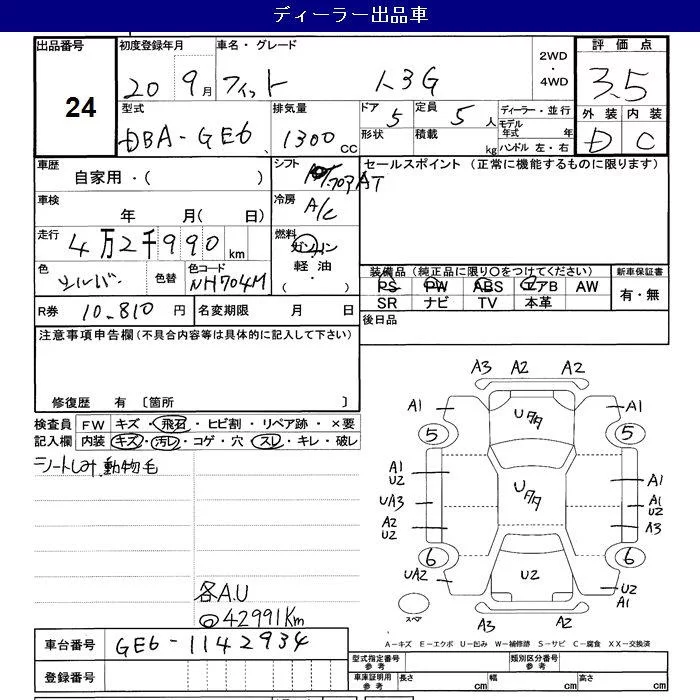 ディーラー出品車
出品番号 初度登録年月 車名・グレード 2WD ・ 4WD 評価点
24
20 9月 フィット 1.3G 3.5
型式 排気量 ドア 定員 ディーラー・並行 外装 内装
DBA-GE6 1300cc 5 5人 モデル年式 年 D C
形状 積載 kg ハンドル 左・右
車歴 シフト フロアAT セールスポイント (正常に機能するものに限ります)
自家用・( )
車検 冷房 A/C
年 月( 日)
走行 4万2千990km 燃料 ガソリン
軽油・( )
色 シルバー 色替 色コード NH704M
装備品(純正品に限り○をつけてください) 新車保証書
PS PW ABS エアB AW 有・無
SR ナビ TV 本革
R券 10.810円 名変期限 月 日 後日品
注意事項申告欄(不具合内容等は具体的に記入して下さい)
修復歴 有 〔箇所 〕
検査員 FW キズ・飛石・ヒビ割・リペア跡・×要
記入欄 内装 キズ・汚レ・コゲ・穴・スレ・キレ・破レ
シートしみ、動物毛
各A.U
◎42991Km
A3 A2 A2
A1 Uタタ A1
5 5
A1 U2 Uタタ A1 U2
UA3 A1 U2
A2 U2 A3
6 6
UA2 U2 U2 A1
スペア
A3 A2
A-キズ E-エクボ U-凹み W-補修跡 S-サビ C-腐食 XX-交換済
車台番号 GE6-1142934
登録番号
型式指定番号 参考 類別区分番号 参考
車庫証明用 参考 長さ cm 幅 cm 高さ cm